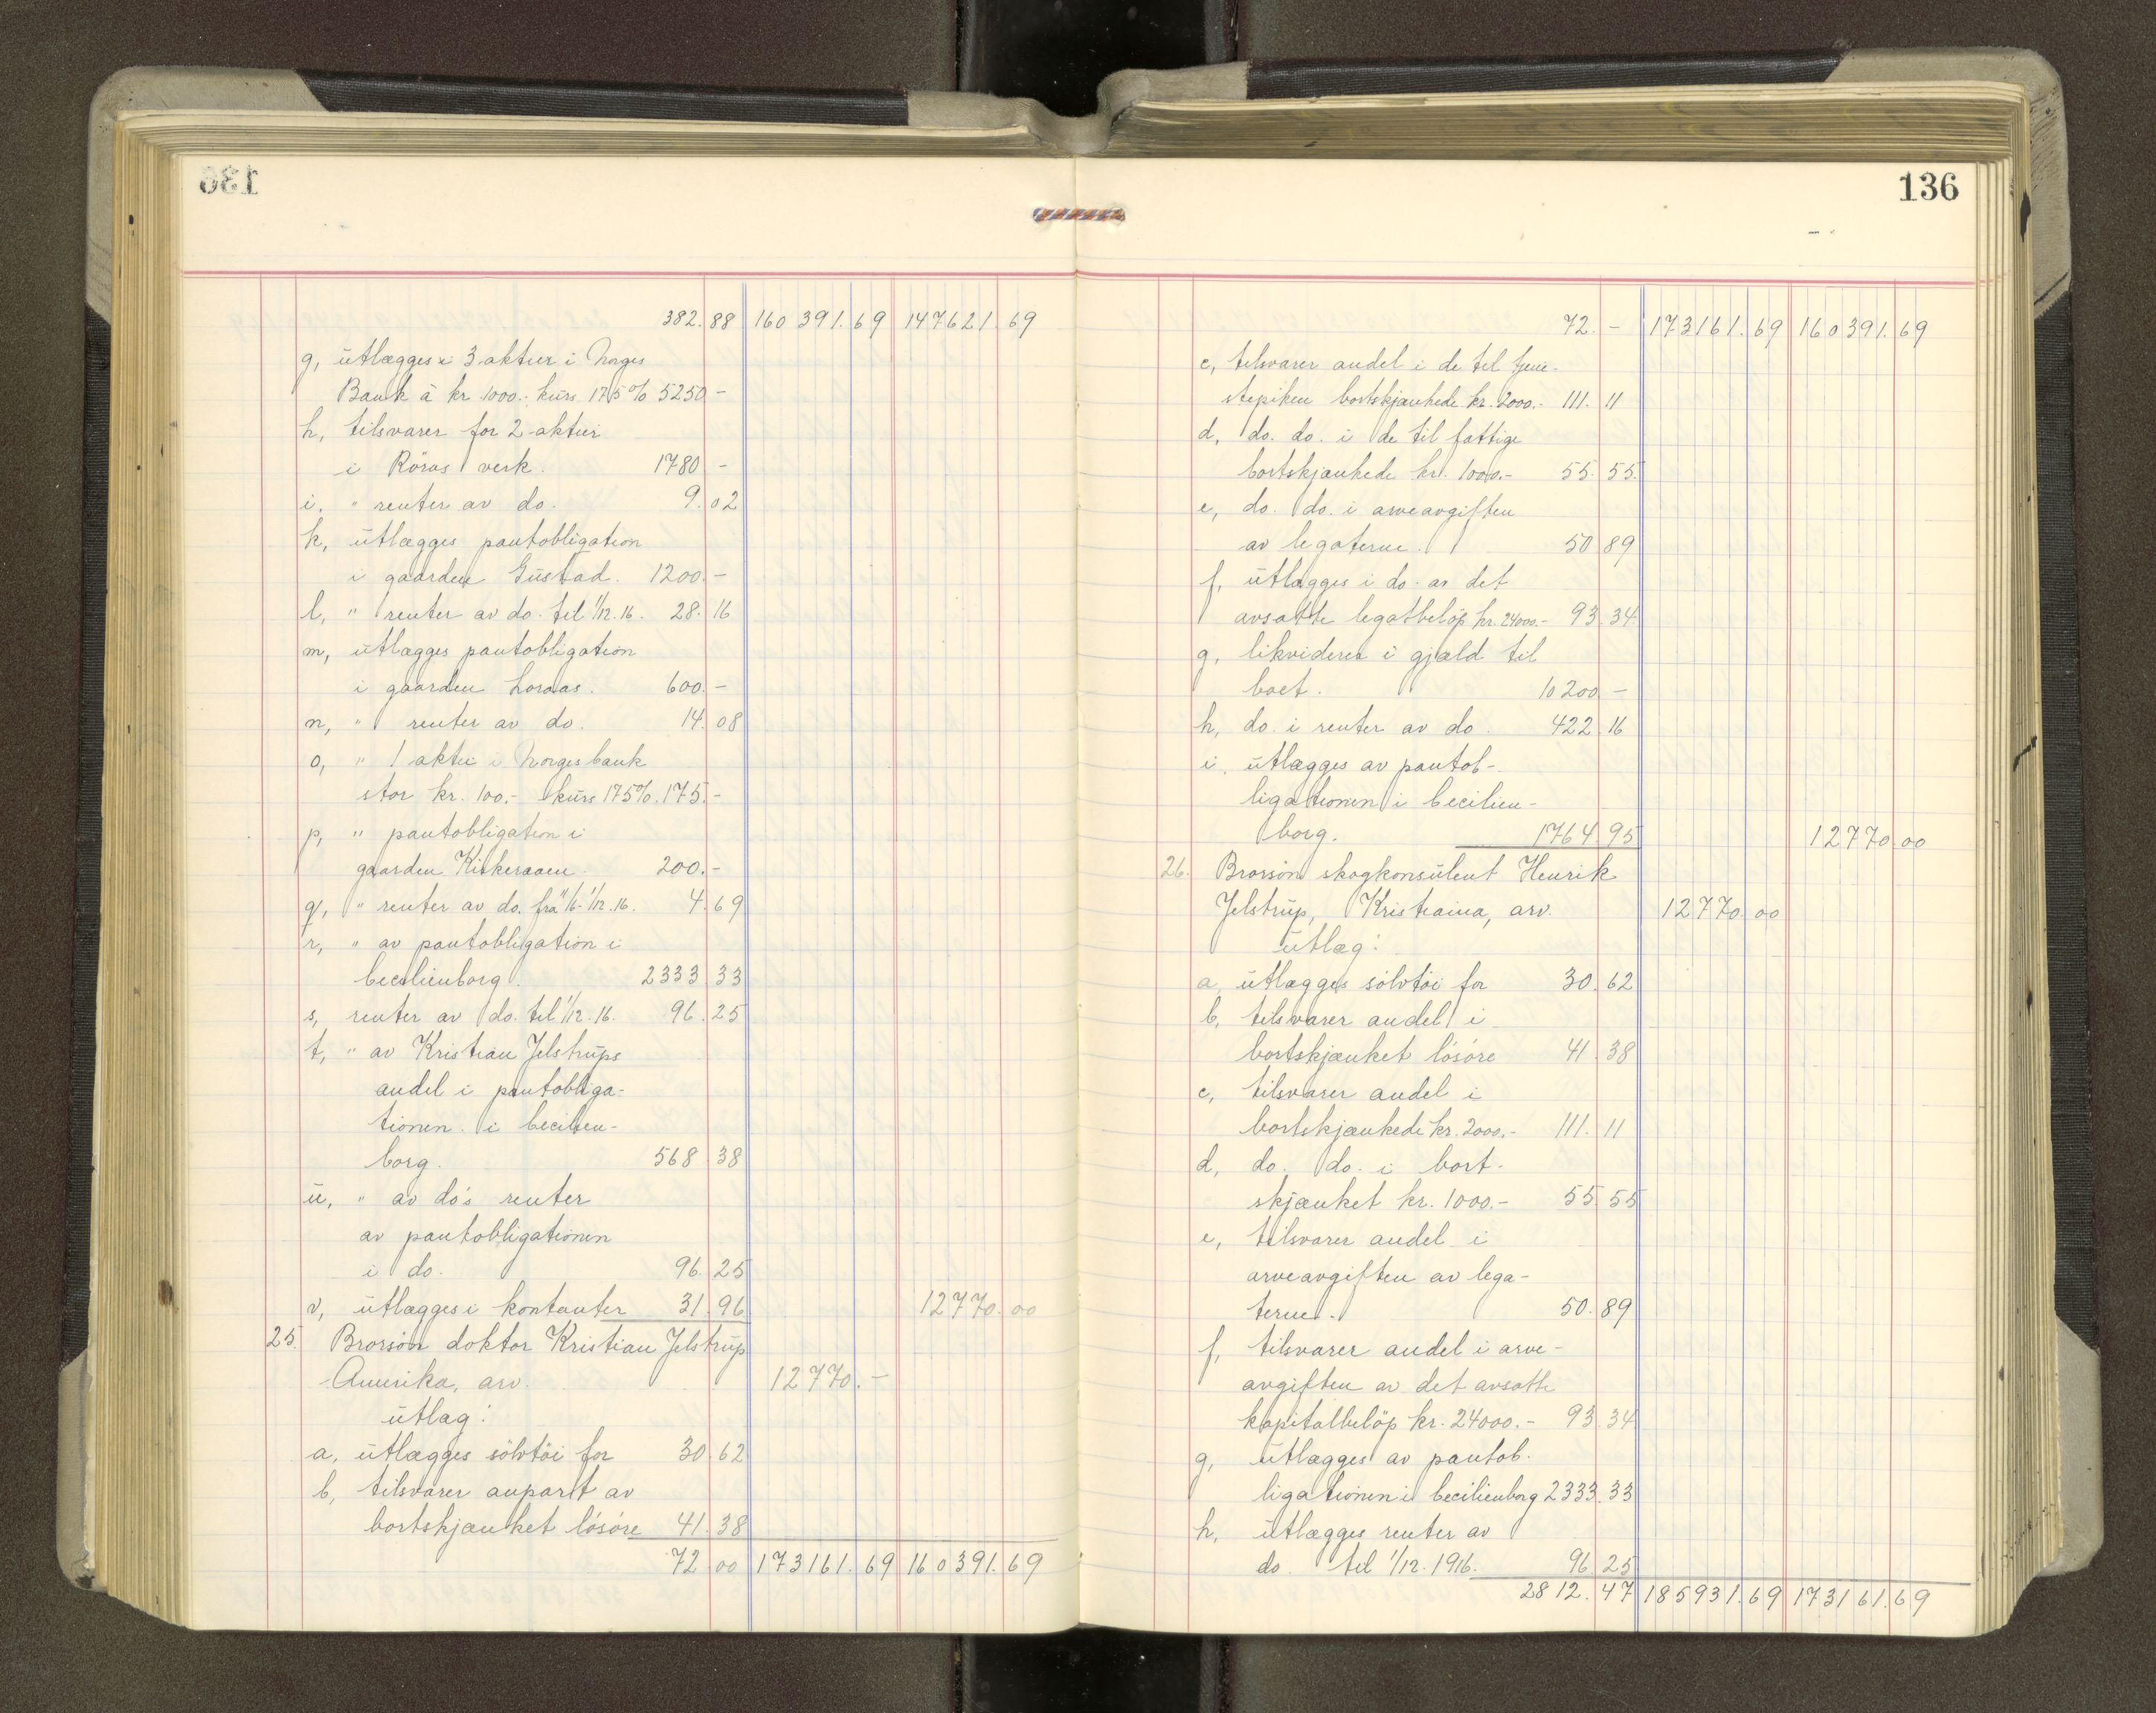 136
382.88 160391.69 147621.69
g, utlægges i 3 aktier i Norges
Bank à kr. 1000.- kurs 175% 5250 -
h, tilsvarer for 2 aktier
i Röros verk. 1780 -
i. " renter av do. 9.02
k, utlægges pantobligation
i gaarden Gustad. 1200.-
l, " renter av do. til 1/12.16. 28.16
m, utlægges pantobligation
i gaarden Loraas. 600.-
n, " renter av do. 14.08
o, " 1 aktie i Norges bank
stor kr. 100.- kurs 175%. 175.-
p, " pantobligation i
gaarden Kirkeraaen. 200.-
q, " renter av do. fra 11/6-1/12.16. 4.69
r, " av pantobligation i
Cecilienborg. 2333.33
s, renter av do. til 1/12.16. 96.25
t, " av Kristian Jelstrups
andel i pantobliga-
tionen i Cecilien-
borg. 568.38
u, " av do's renter
av pantobligationen
i do. 96.25
v, utlægges i kontanter 31.96 12770.00
25. Brorsön doktor Kristian Jelstrup
Amerika, arv. 12770.-
utlæg:
a, utlægges sölvtöi for 30.62
b, tilsvarer anpart av
bortskjænket lösöre 41.38
72 00 173161.69 160391.69
136
72.- 173161.69 160391.69
c, tilsvarer andel i de til tjene-
stepiken bortskjænkede kr. 2000.- 111.11
d, do. do. i de til fattige
bortskjænkede kr. 1000.- 55.55.
e, do. do. i arveavgiften
av legaterne. 50 89
f, utlægges i do. av det
avsatte legatbelöp kr. 24000.- 93.34
g, likvideres i gjæld til
boet. 10200 -
h, do. i renter av do. 422.16
i. utlægges av pantob-
ligationen i Cecilien-
borg. 1764 95 12770.00
26. Brorsön skogkonsulent Henrik
Jelstrup, Kristiania, arv. 12770 00
utlæg:
a, utlægges sölvtöi for 30.62
b, tilsvarer andel i
bortskjænket lösöre 41.38
c, tilsvarer andel i
bortskjænkede kr. 2000.- 111.11
d, do. do. i bort-
skjænket kr. 1000.- 55.55
e, tilsvarer andel i
arveavgiften av lega-
terne. 50.89
f, tilsvarer andel i arve-
avgiften av det avsatte
kapitalbelöp kr. 24000.- 93.34
g, utlægges av pantob.
ligationen i Cecilienborg 2333.33
h, utlægges renter av
do. til 1/12.1916. 96 25
2812.47 185931.69 173161.69